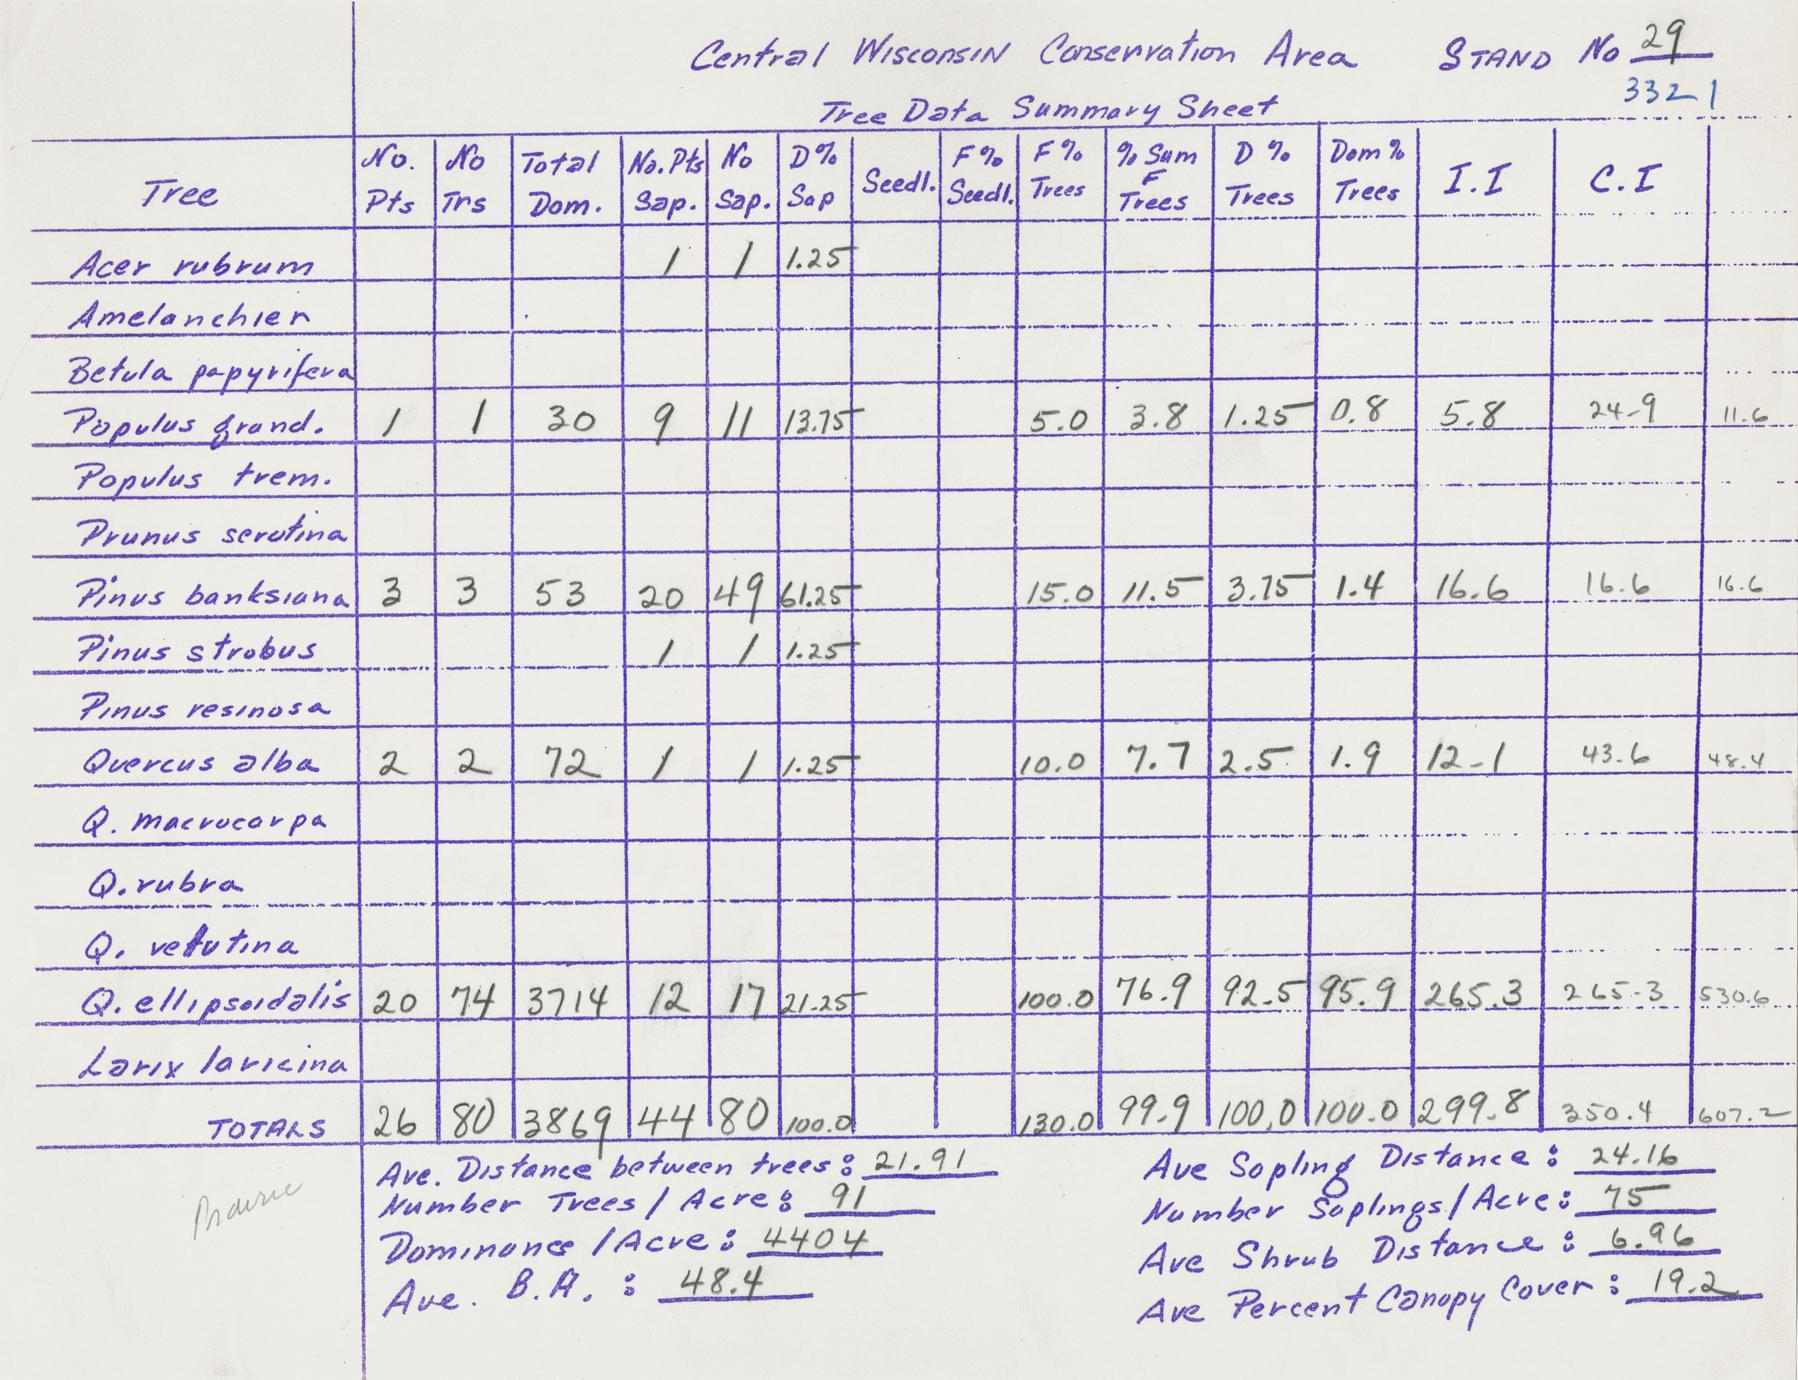 Central Wisconsin Conservation Area STAND No 29
3321
Tree Data Summary Sheet
Tree No. Pts No Trs Total Dom. No. Pts Sap. No Sap. D% Sap Seedl. F% Seedl. F% Trees % Sum F Trees D % Trees Dom % Trees I.I C.I
Acer rubrum 1 1 1.25
Amelanchier
Betula papyrifera
Populus grand. 1 1 30 9 11 13.75 5.0 3.8 1.25 0.8 5.8 24.9 11.6
Populus trem.
Prunus serotina
Pinus banksiana 3 3 53 20 49 61.25 15.0 11.5 3.75 1.4 16.6 16.6 16.6
Pinus strobus 1 1 1.25
Pinus resinosa
Quercus alba 2 2 72 1 1 1.25 10.0 7.7 2.5 1.9 12.1 43.6 48.4
Q. macrocarpa
Q. rubra
Q. velutina
Q. ellipsoidalis 20 74 3714 12 17 21.25 100.0 76.9 92.5 95.9 265.3 265.3 530.6
Larix laricina
TOTALS 26 80 3869 44 80 100.0 130.0 99.9 100.0 100.0 299.8 350.4 607.2
Ave. Distance between trees: 21.91 Ave Sapling Distance: 24.16
Number Trees/Acre: 91 Number Saplings/Acre: 75
Dominance/Acre: 4404 Ave Shrub Distance: 6.96
Ave. B.A.: 48.4 Ave Percent Canopy Cover: 19.2
Prairie